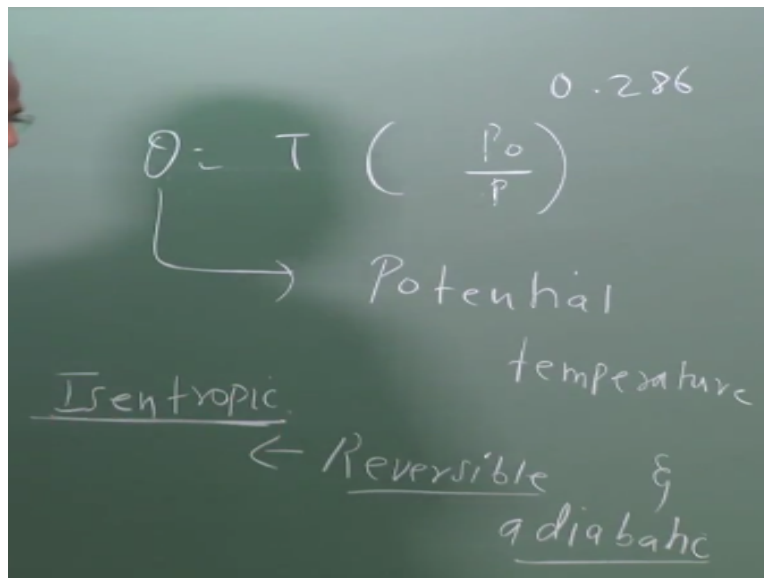 0.286
θ = T ( Po / P )
Potential
temperature
Isentropic
← Reversible &
adiabatic